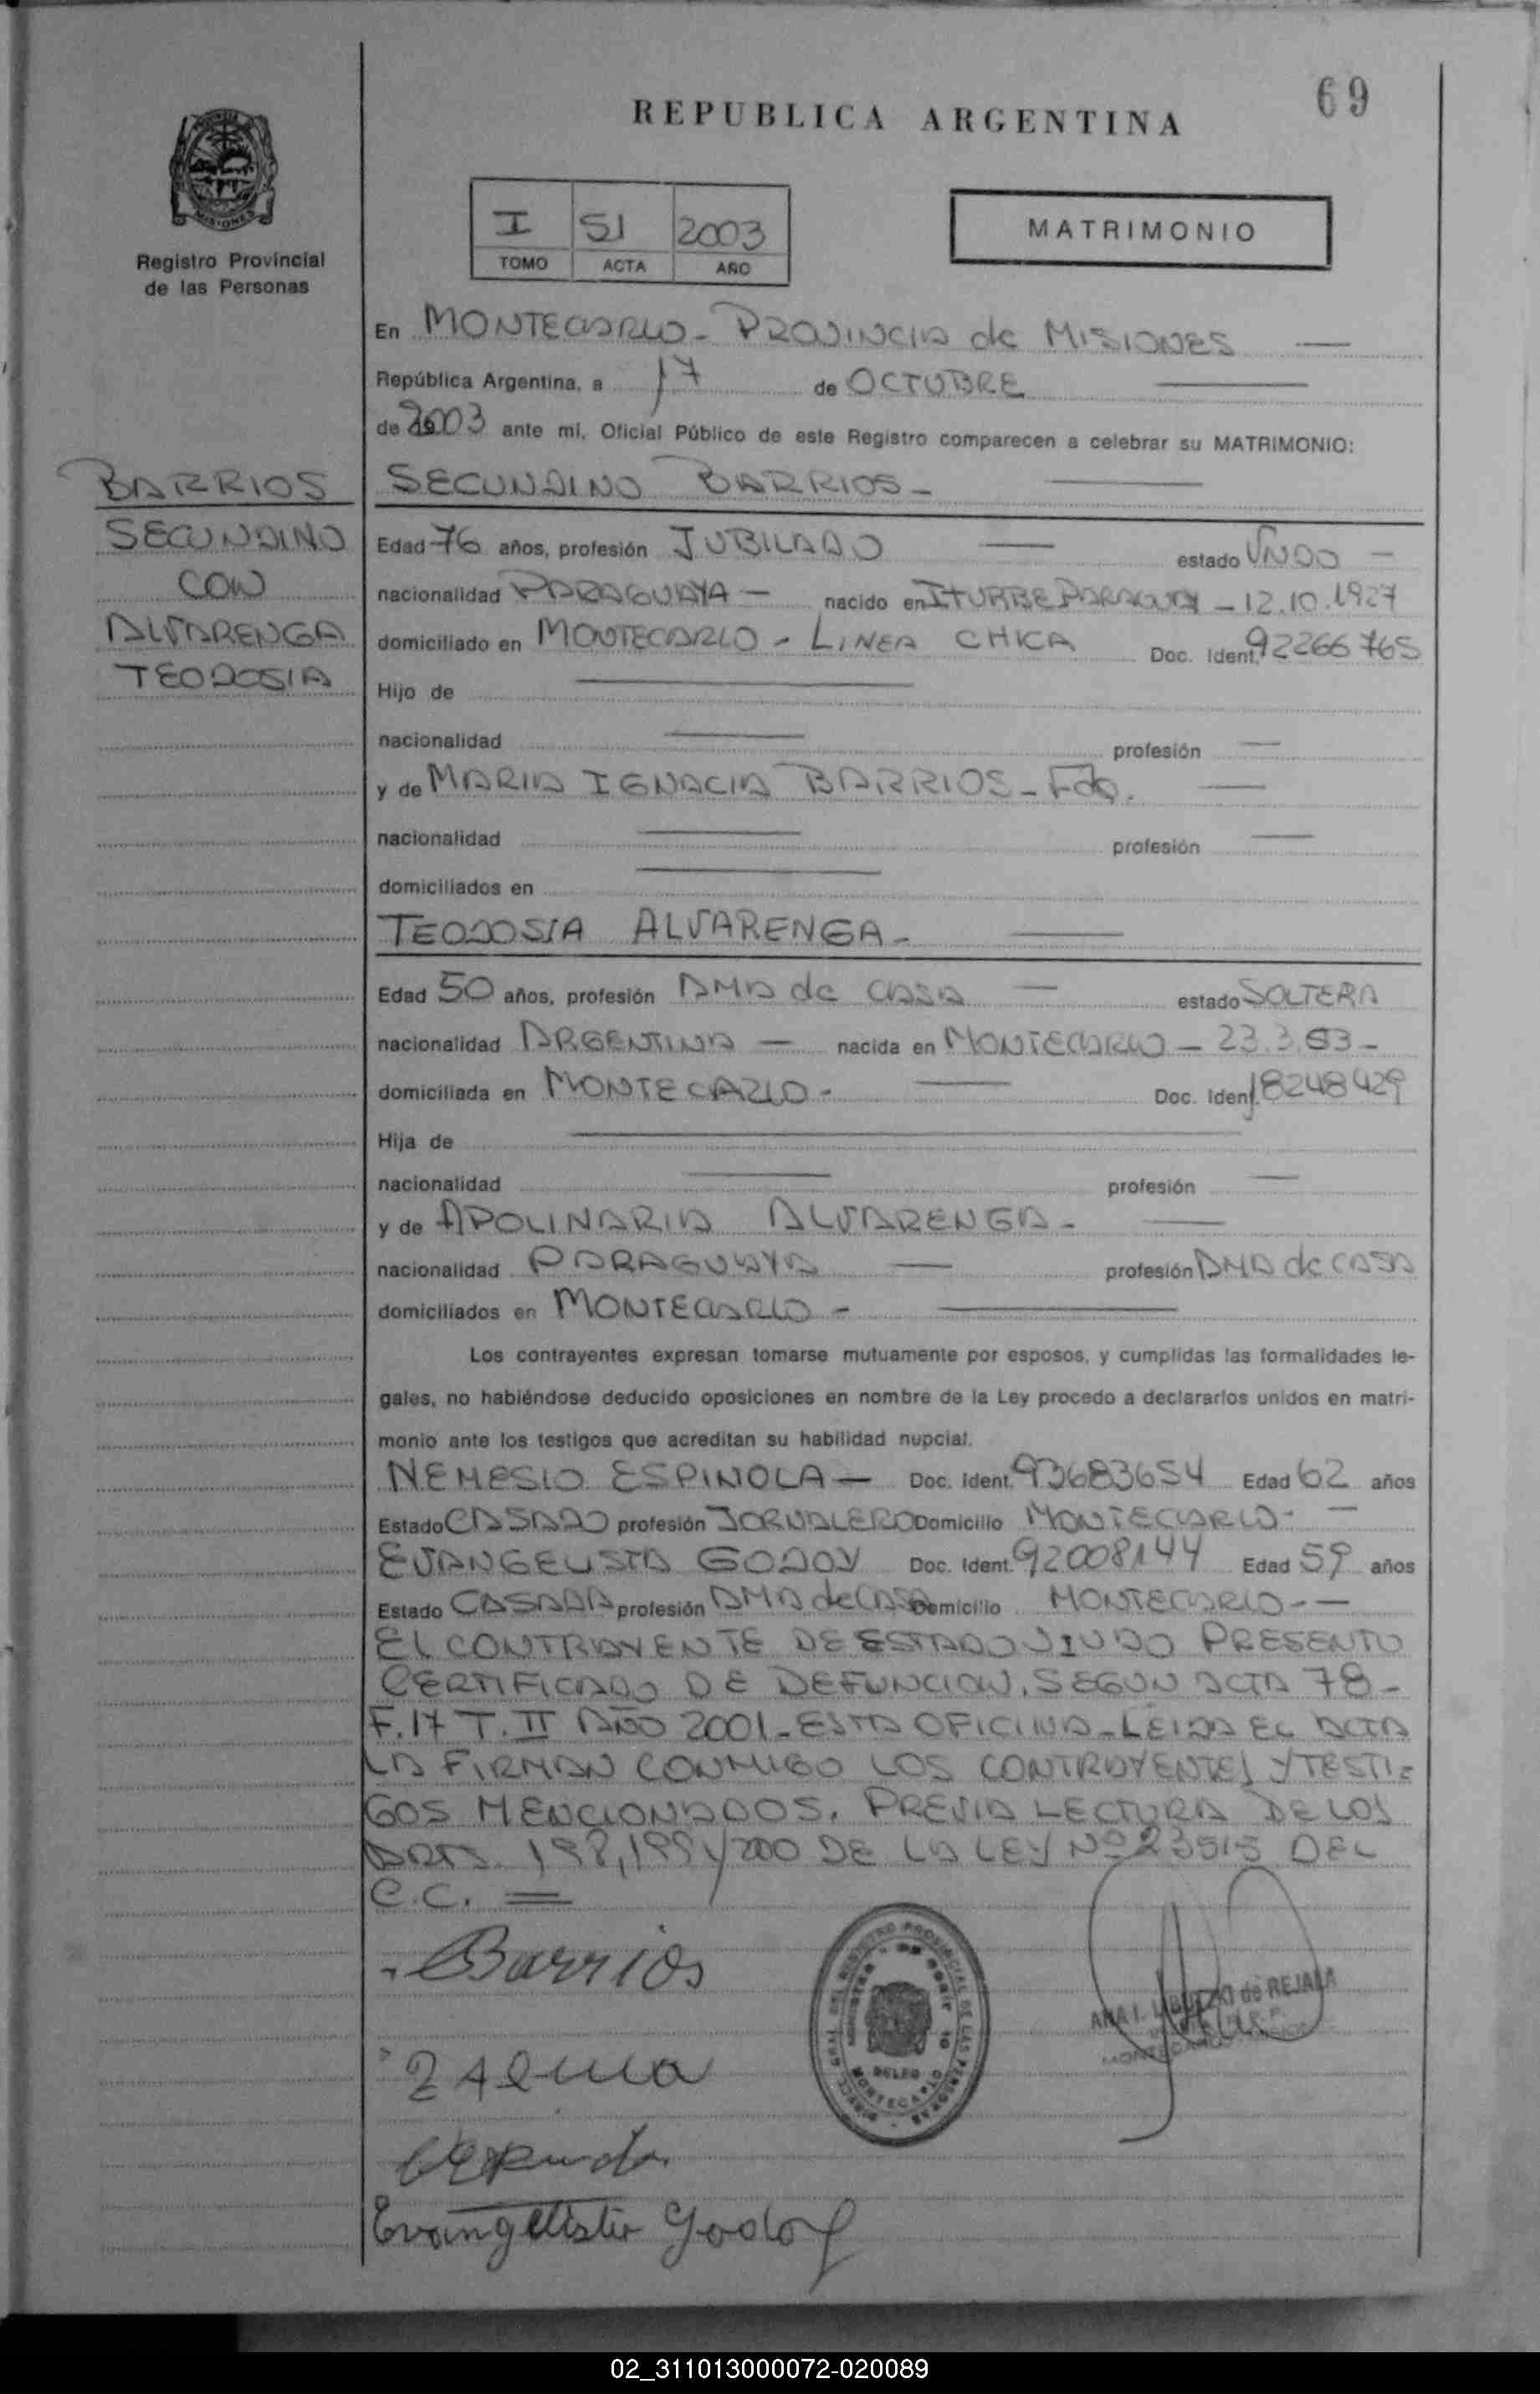 69
REPUBLICA ARGENTINA
I 51 2003
TOMO ACTA AÑO
MATRIMONIO
MISIONES
Registro Provincial
de las Personas
En MONTECARLO - PROVINCIA de MISIONES
República Argentina, a 17 de OCTUBRE
de 2003 ante mi, Oficial Público de este Registro comparecen a celebrar su MATRIMONIO:
BARRIOS
SECUNDINO
CON
ALVARENGA
TEODOSIA
SECUNDINO BARRIOS -
Edad 76 años, profesión JUBILADO estado VIUDO -
nacionalidad PARAGUAYA - nacido en ITURBE PARAGUAY - 12.10.1927
domiciliado en MONTECARLO - LINEA CHICA Doc. Ident. 92266765
Hijo de
nacionalidad profesión
y de MARIA IGNACIA BARRIOS - Fda.
nacionalidad profesión
domiciliados en
TEODOSIA ALVARENGA -
Edad 50 años, profesión AMA de CASA estado SOLTERA
nacionalidad ARGENTINA - nacida en MONTECARLO - 23.3.53 -
domiciliada en MONTECARLO - Doc. Ident. 18248429
Hija de
nacionalidad profesión
y de APOLINARIA ALVARENGA -
nacionalidad PARAGUAYA profesión AMA de CASA
domiciliados en MONTECARLO -
Los contrayentes expresan tomarse mutuamente por esposos, y cumplidas las formalidades le-
gales, no habiéndose deducido oposiciones en nombre de la Ley procedo a declararlos unidos en matri-
monio ante los testigos que acreditan su habilidad nupcial.
NEMESIO ESPINOLA - Doc. Ident. 93683654 Edad 62 años
Estado CASADO profesión JORNALERO Domicilio MONTECARLO -
EVANGELISTA GODOY Doc. Ident. 92008144 Edad 59 años
Estado CASADA profesión AMA de CASA Domicilio MONTECARLO -
EL CONTRAYENTE DE ESTADO VIUDO PRESENTO
CERTIFICADO DE DEFUNCION, SEGUN ACTA 78 -
F.17 T. II AÑO 2001 - ESTA OFICINA - LEIDA EL ACTA
LA FIRMAN CONMIGO LOS CONTRAYENTES Y TESTI=
GOS MENCIONADOS. PREVIA LECTURA DE LOS
ARTS. 198, 199 y 200 DE LA LEY Nº 23515 DEL
C.C. =
Barrios
ANA I. de REJALA
MONTECARLO
Evangelista Godoy
02_311013000072-020089